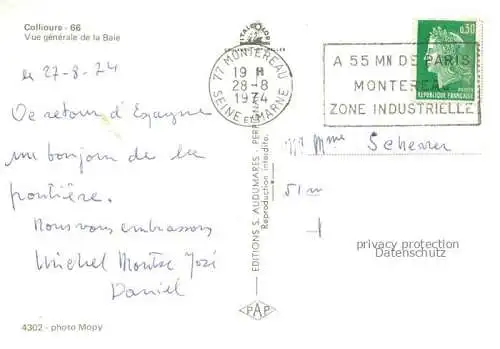 Collioure - 66
Vue générale de la Baie
le 27-8-74
De retour d'Espagne
un bonjour de la
frontière.
Nous vous embrassons
Michel Montse José
Daniel
4302 - photo Mopy
77 MONTEREAU
19 H
28-8
1974
SEINE ET MARNE
EDITIONS S. AUDUMARES - PERPIGNAN
Reproduction interdite.
PAP
0,30
REPUBLIQUE FRANÇAISE
A 55 MN DE PARIS
MONTEREAU
ZONE INDUSTRIELLE
Mme Scherrer
privacy protection
Datenschutz